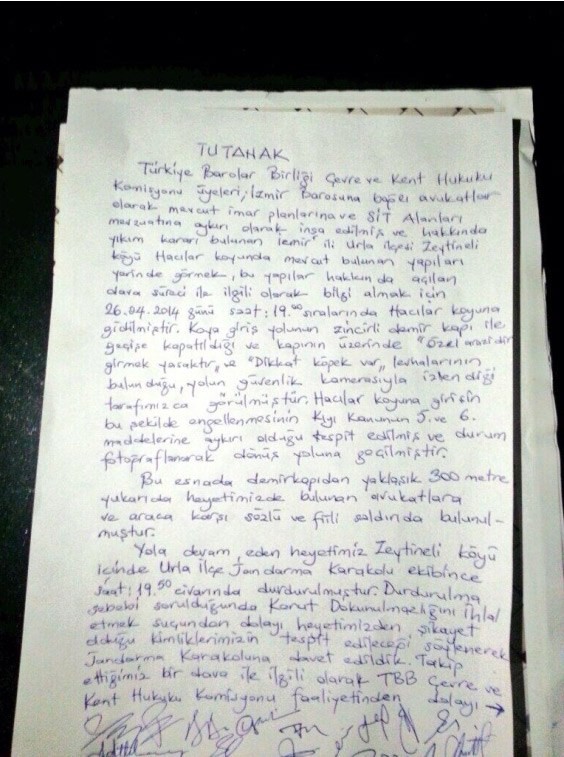 TUTANAK
Türkiye Barolar Birliği Çevre ve Kent Hukuku
Komisyonu üyeleri, İzmir Barosuna bağlı avukatlar
olarak mevcut imar planlarına ve SİT Alanları
mevzuatına aykırı olarak inşa edilmiş ve hakkında
yıkım kararı bulunan İzmir ili Urla ilçesi Zeytineli
köyü Hacılar koyunda mevcut bulunan yapıları
yerinde görmek, bu yapılar hakkında açılan
dava süreci ile ilgili olarak bilgi almak için
26.04.2014 günü saat: 19.00 sıralarında Hacılar koyuna
gidilmiştir. Koya giriş yolunun zincirli demir kapı ile
geçişe kapatıldığı ve kapının üzerinde "Özel arazidir
girmek yasaktır" ve "Dikkat köpek var" levhalarının
bulunduğu, yolun güvenlik kamerasıyla izlendiği
tarafımızca görülmüştür. Hacılar koyuna girişin
bu şekilde engellenmesinin Kıyı Kanunun 5. ve 6.
maddelerine aykırı olduğu tespit edilmiş ve durum
fotoğraflanarak dönüş yoluna geçilmiştir.
Bu esnada demirkapıdan yaklaşık 300 metre
yukarıda heyetimizde bulunan avukatlara
ve araca karşı sözlü ve fiili saldırıda bulunul-
muştur.
Yola devam eden heyetimiz Zeytineli köyü
içinde Urla İlçe Jandarma Karakolu ekibince
saat: 19.50 civarında durdurulmuştur. Durdurulma
sebebi sorulduğunda Konut Dokunulmazlığını ihlal
etmek suçundan dolayı heyetimizden şikayet
olduğu kimliklerimizin tespit edileceği söylenerek
Jandarma Karakoluna davet edildik. Takip
ettiğimiz bir dava ile ilgili olarak TBB Çevre ve
Kent Hukuku Komisyonu faaliyetinden dolayı →